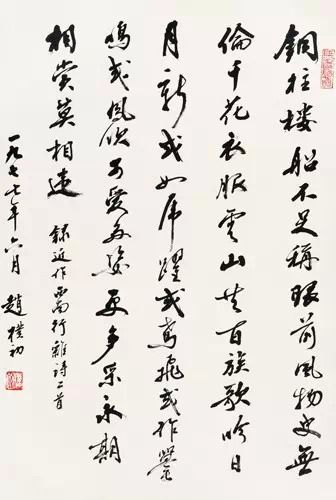 銅柱樓船不足稱眼前風物史無
倫千花衣服雲山共百族歌吟日
月新或如虎躍或鳶飛或作鸞
鳴或鳳吹可愛多姿更多采永期
相賞莫相違 録近作西南行雜詩二首
一九七七年六月 趙樸初